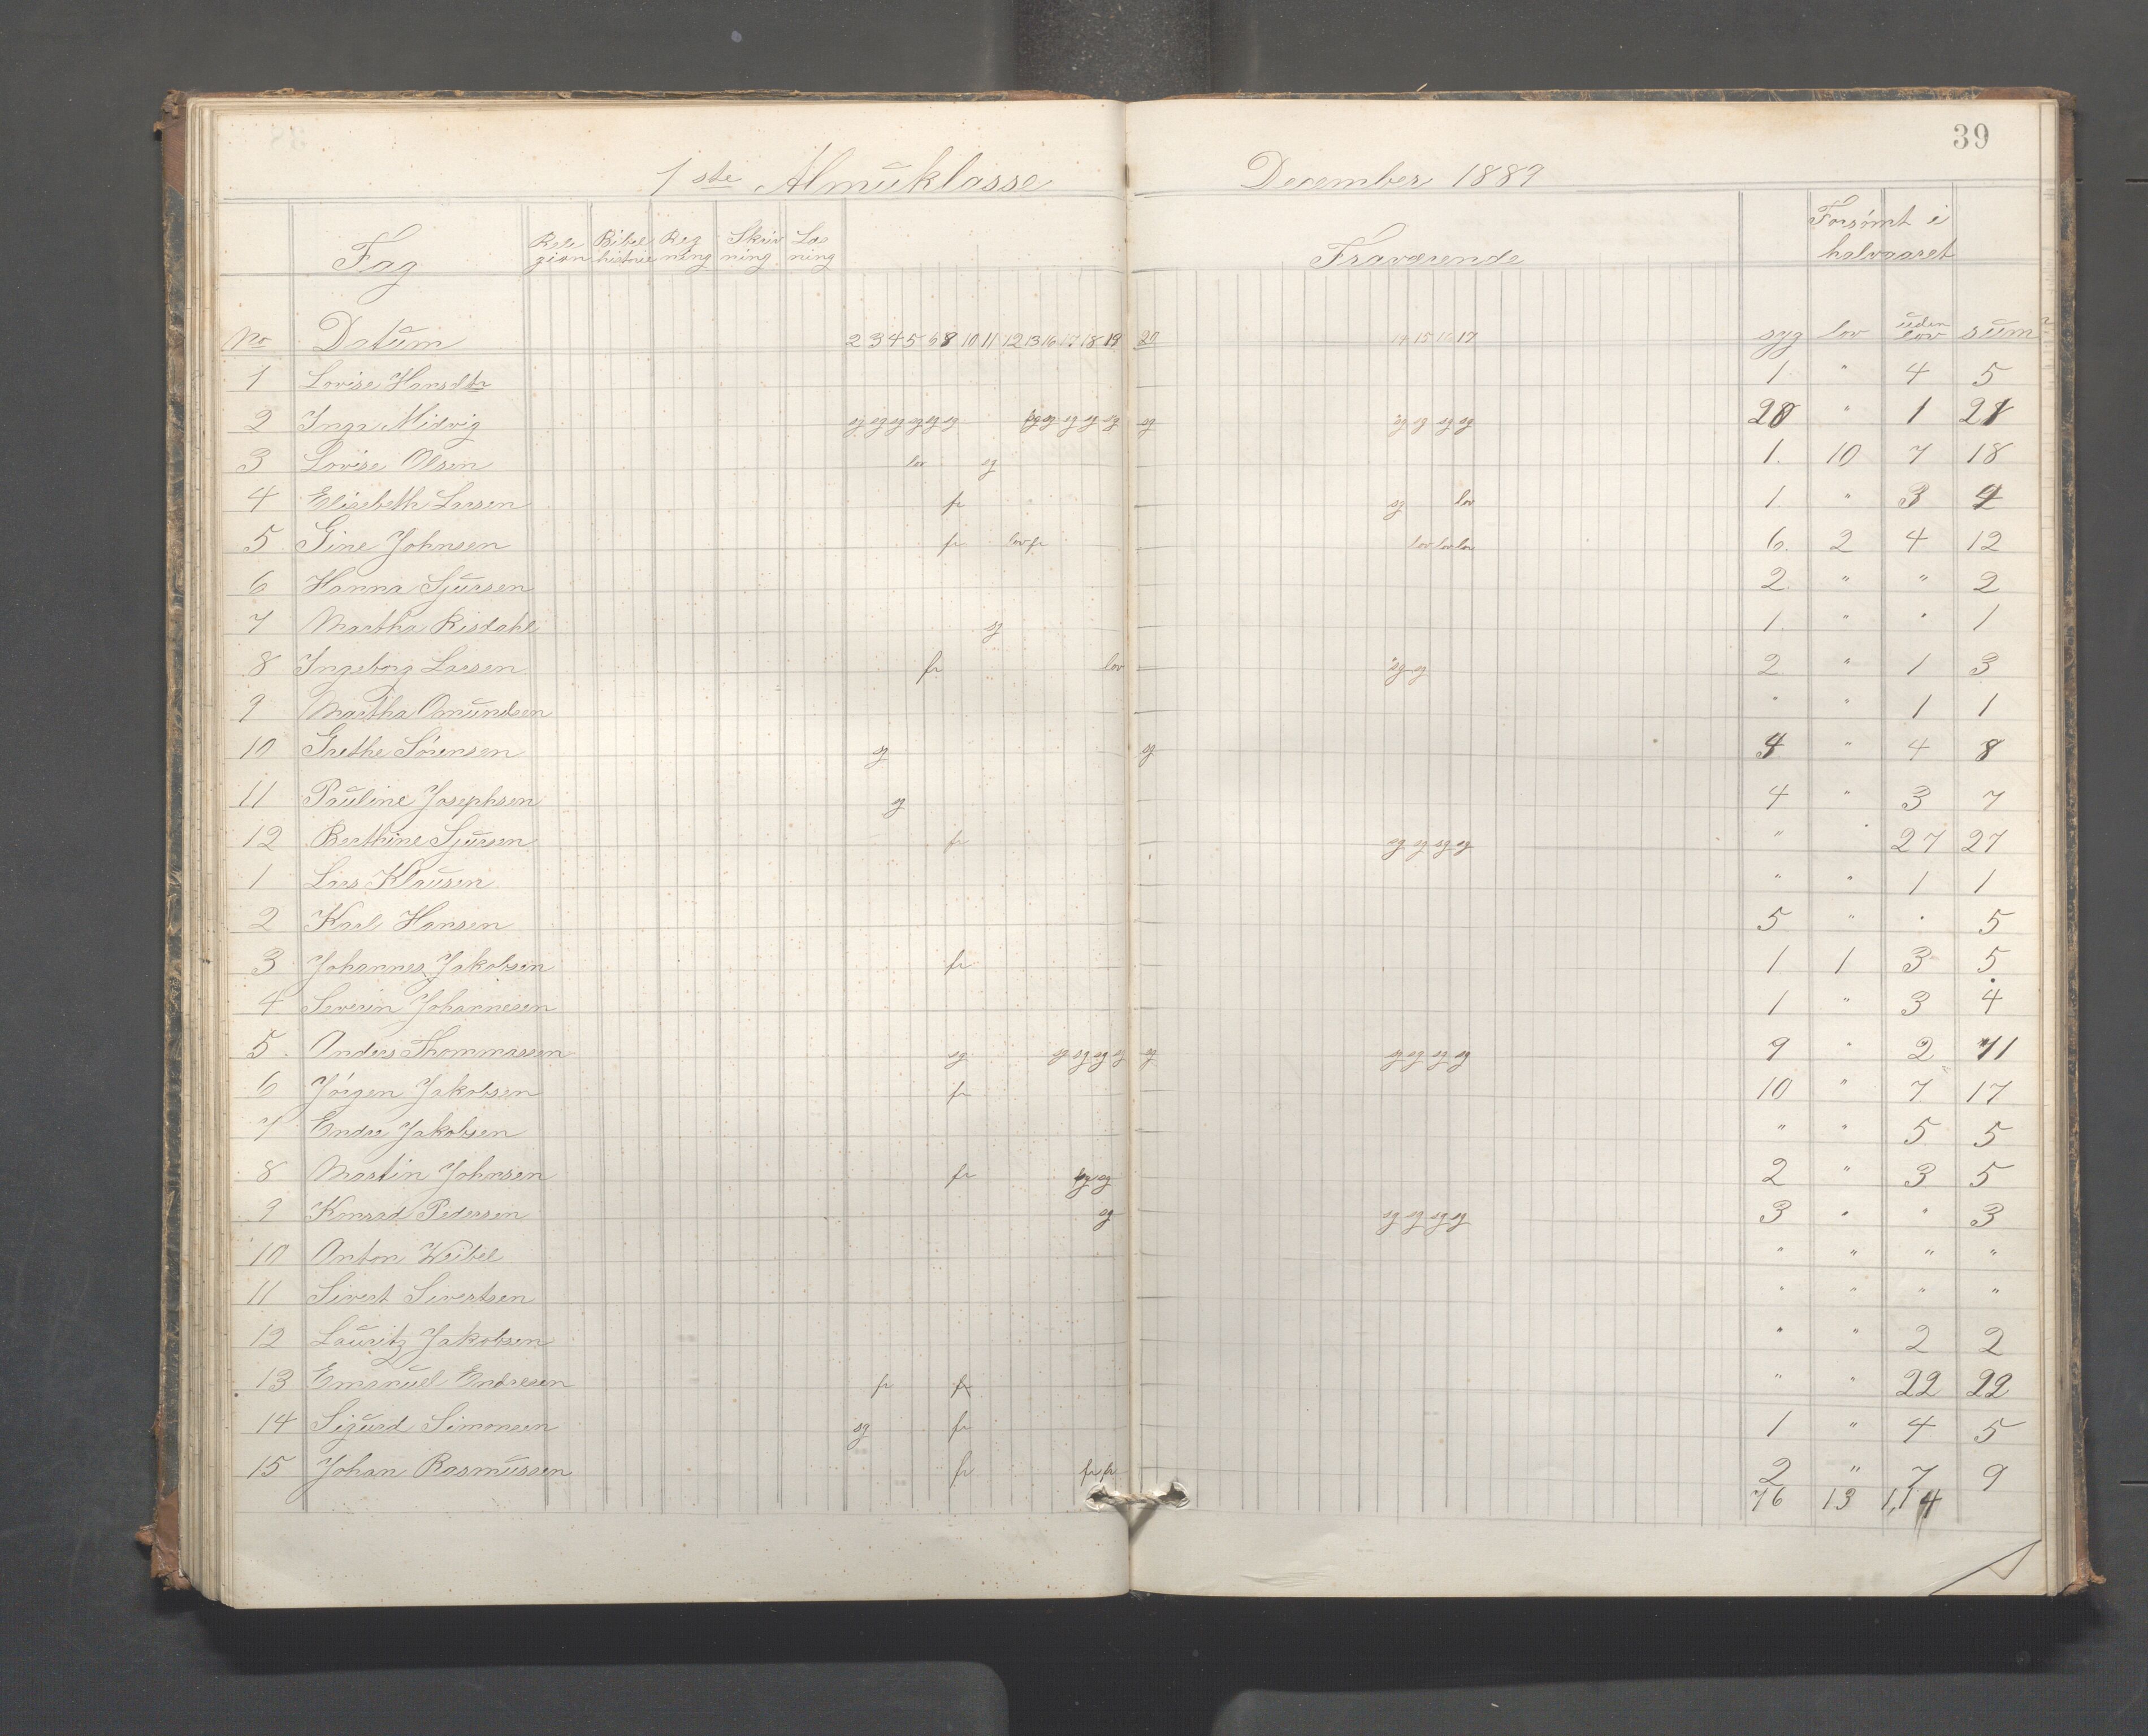 39
1ste Almuklasse December 1889
Fag Reli gion Bibel historie Reg ning Skriv ning Læs ning Fraværende Forsømt i halvaaret
No Datum 2 3 4 5 6 8 10 11 12 13 16 17 18 19 20 14 15 16 17 syg lov uden lov sum
1 Lovise Hansdtr 1 " 4 5
2 Inga Midvig sg sg sg sg sg sg sg sg sg sg sg sg sg sg sg sg 20 " 1 21
3 Lovise Olsen lov sg 1. 10 7 18
4 Elisebeth Larsen fr sg lov 1. " 3 4
5 Gine Johnsen fr lov fr lov lov lov 6 2 4 12
6 Hanna Sjursen 2 " " 2
7 Martha Risdahl sg 1. " " 1
8 Ingeborg Larsen fr lov sg sg 2 " 1 3
9 Martha Omundsen " " 1 1
10 Grethe Sørensen sg sg 4 " 4 8
11 Pauline Josephsen sg 4 " 3 7
12 Berthine Sjursen fr sg sg sg sg " 27 27
1 Lars Klausen " " 1 1
2 Karl Hansen 5 " " 5
3 Johannes Jakobsen fr 1 1 3 5
4 Severin Johannesen 1 " 3 4
5 Anders Thommassen sg sg sg sg sg sg sg sg sg sg 9 " 2 11
6 Jørgen Jakobsen fr 10 " 7 17
7 Endre Jakobsen " " 5 5
8 Martin Johnsen fr sg sg 2 " 3 5
9 Konrad Pedersen sg sg sg sg sg 3 " " 3
10 Anton Weibel " " " "
11 Sivert Sivertsen " " " "
12 Lauritz Jakobsen " " 2 2
13 Emanuel Endresen fr fr " " 22 22
14 Sigurd Simonsen sg fr 1 " 4 5
15 Johan Rasmussen fr fr fr 2 " 7 9
76 13 1,14